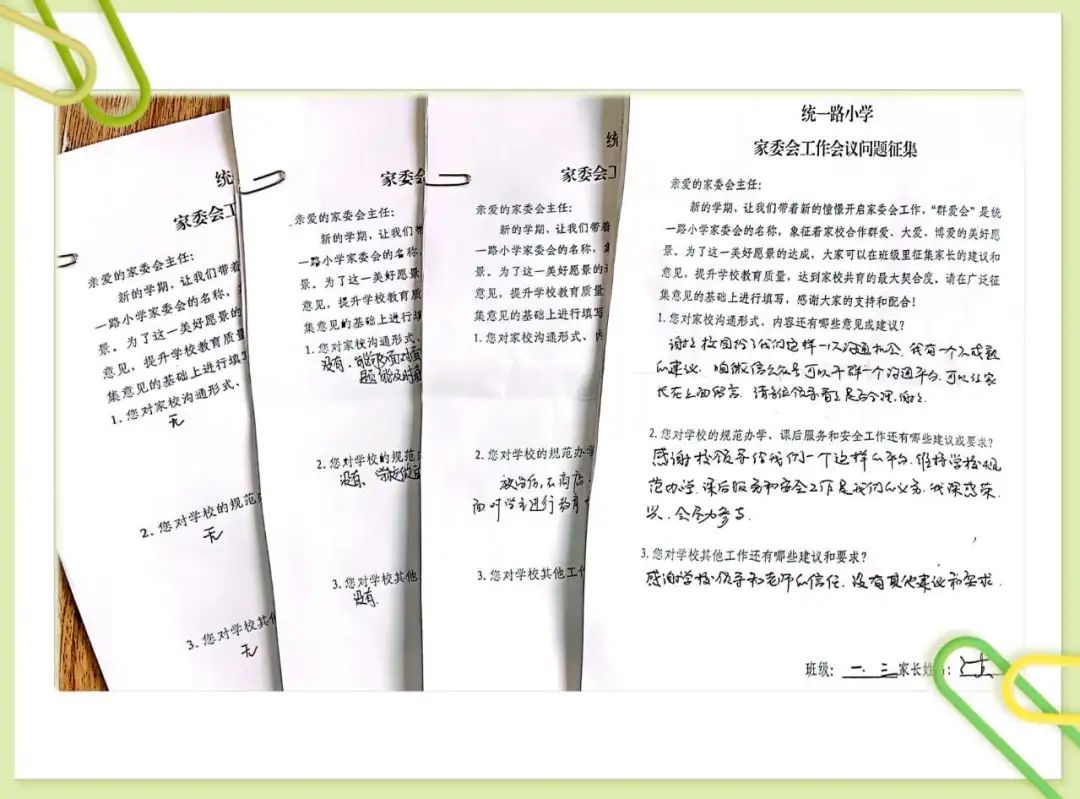 统
家委会工
亲爱的家委会主任：
新的学期，让我们带着
一路小学家委会的名称，
景。为了这一美好愿景的
意见，提升学校教育质量
集意见的基础上进行填
1. 您对家校沟通形式、
无
2. 您对学校的规范
无
3. 您对学校其
无
家委会
亲爱的家委会主任：
新的学期，让我们
一路小学家委会的名称，
景。为了这一美好愿景
意见，提升学校教育质
集意见的基础上进行
1. 您对家校沟通形式、
没有，能够面对面
题能及时
2. 您对学校的规范
没有，学校做
3. 您对学校其他
没有.
统
家委会工
亲爱的家委会主任：
新的学期，让我们带着
一路小学家委会的名称，
景。为了这一美好愿景的
意见，提升学校教育质量
集意见的基础上进行填写
1. 您对家校沟通形式、内
2. 您对学校的规范办学
放学后，在商店
面对学生进行教育
3. 您对学校其他工作
统一路小学
家委会工作会议问题征集
亲爱的家委会主任：
新的学期，让我们带着新的憧憬开启家委会工作，“群爱会”是统
一路小学家委会的名称，象征着家校合作群爱、大爱、博爱的美好愿
景。为了这一美好愿景的达成，大家可以在班级里征集家长的建议和
意见，提升学校教育质量，达到家校共育的最大契合度。请在广泛征
集意见的基础上进行填写，感谢大家的支持和配合！
1. 您对家校沟通形式、内容还有哪些意见或建议？
谢谢校园给了我们这样一次沟通机会，我有一个不成熟
的建议，咱微信公众号可以开辟一个沟通平台，可以让家
长在上面留言，请各位领导看看是否合理，谢谢.
2. 您对学校的规范办学、课后服务和安全工作还有哪些建议或要求？
感谢校领导给我们一个这样的平台，维持学校规
范办学，课后服务和安全工作是我们的义务，我深感荣
兴，会尽力参与.
3. 您对学校其他工作还有哪些建议和要求？
感谢学校领导和老师的信任，没有其他建议和要求.
班级：一.三 家长姓：